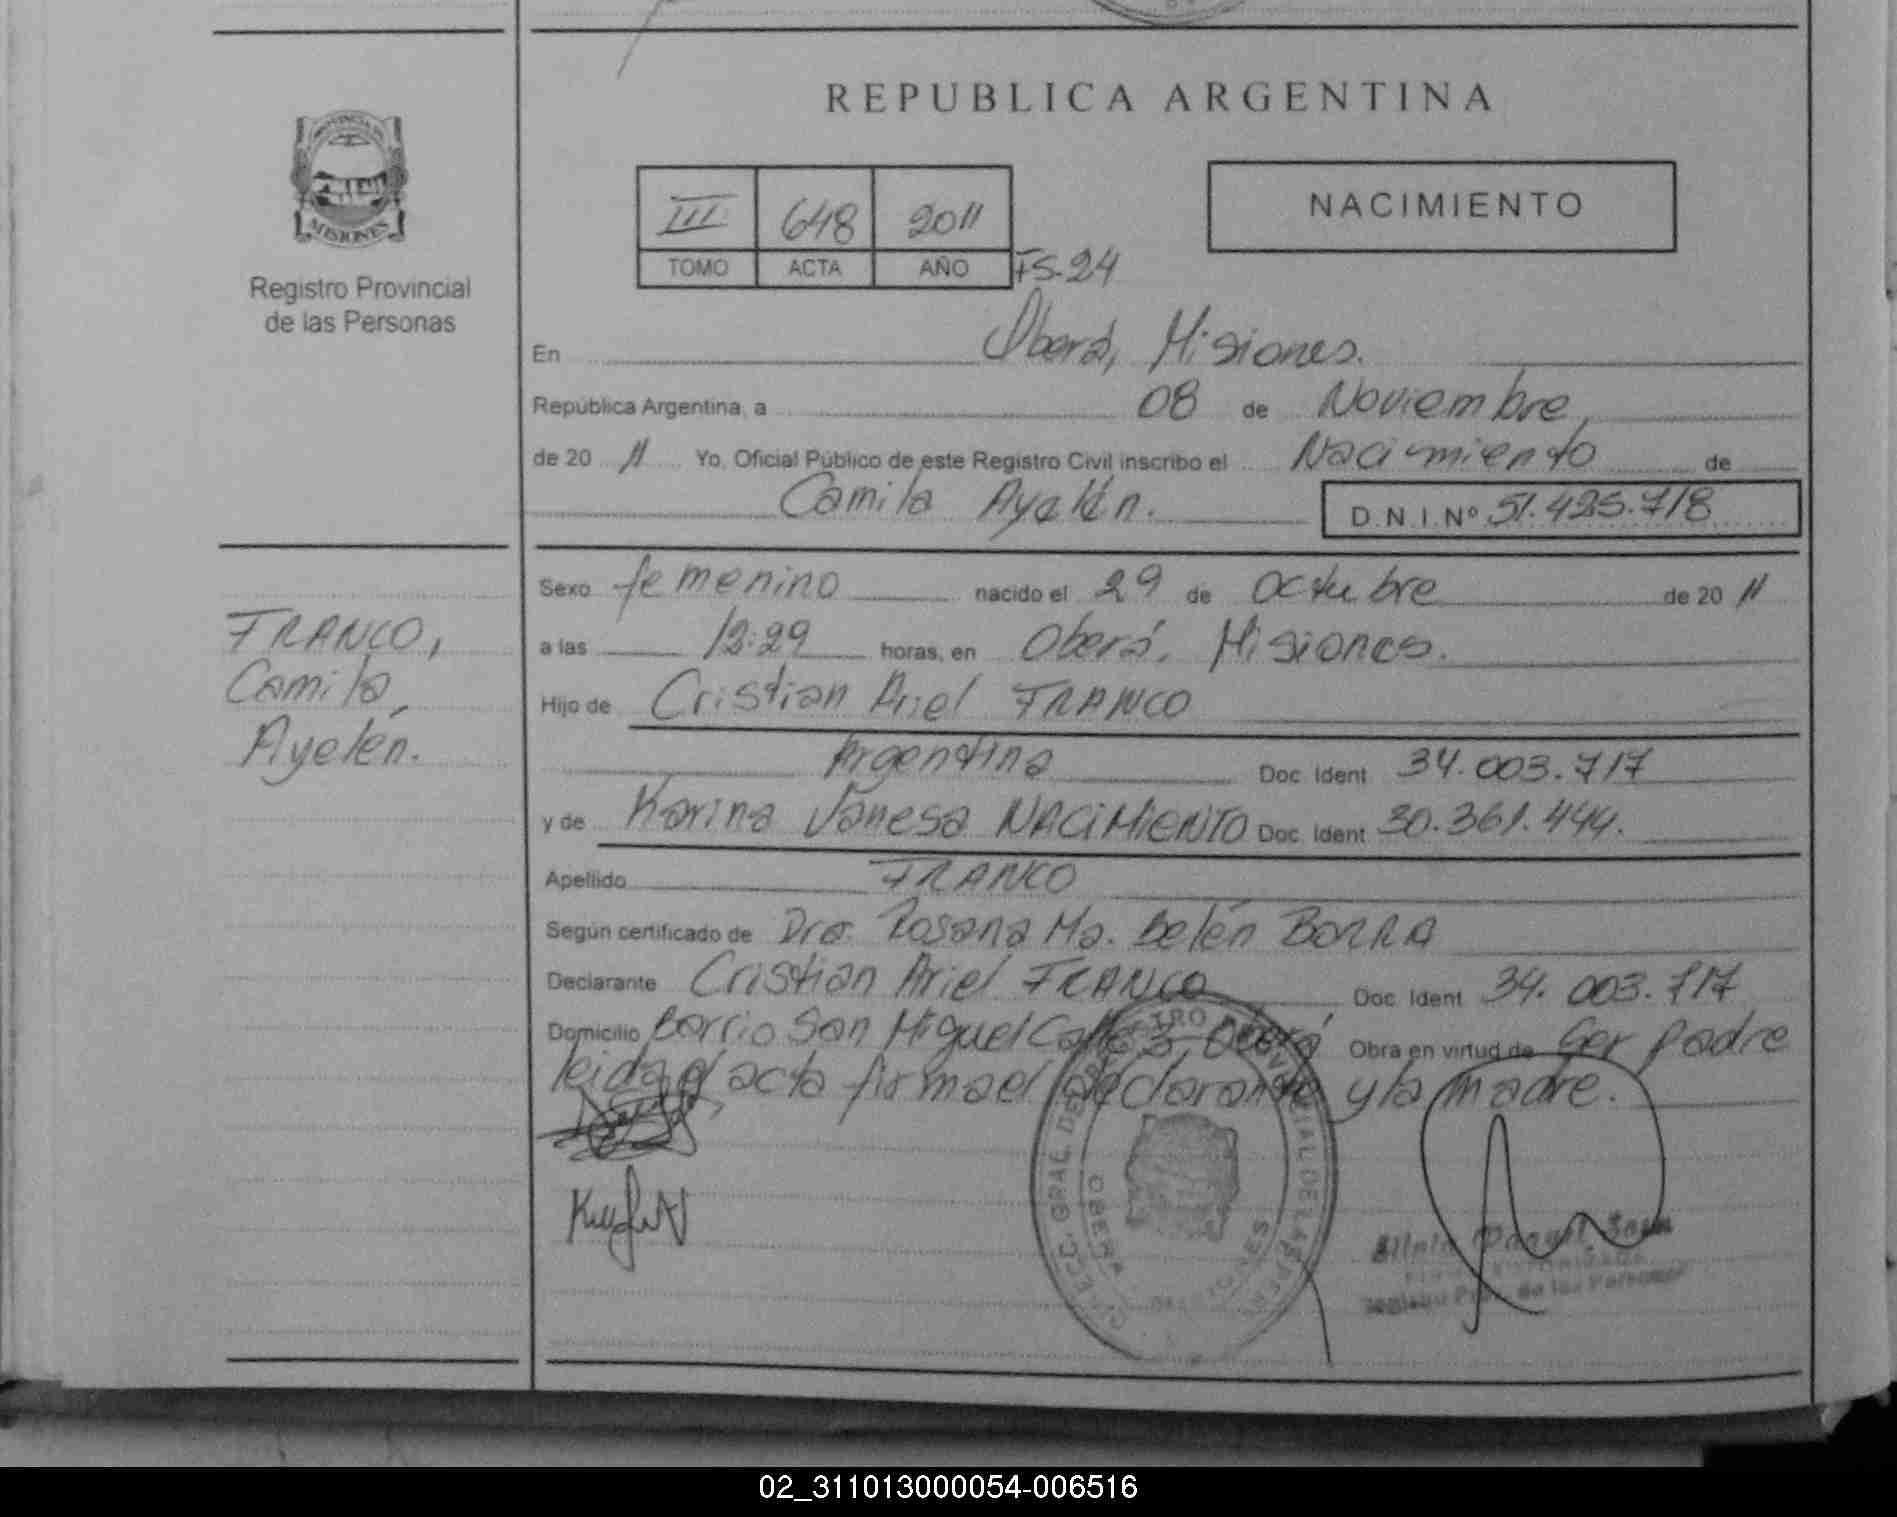 REPUBLICA ARGENTINA
PROVINCIA DE
MISIONES
Registro Provincial
de las Personas
III 648 2011
TOMO ACTA AÑO
FS. 24
NACIMIENTO
En Oberá, Misiones.
República Argentina, a 08 de Noviembre,
de 20 11 Yo, Oficial Público de este Registro Civil inscribo el Nacimiento de
Camila Ayelén.
D.N.I.Nº 51.425.718
Sexo femenino nacido el 29 de Octubre de 20 11
FRANCO,
Camila,
Ayelén.
a las 12:29 horas, en Oberá, Misiones.
Hijo de Cristian Ariel FRANCO
Argentina Doc. Ident 34.003.717
y de Karina Vanesa NACIMIENTO Doc. Ident 30.361.444.
Apellido FRANCO
Según certificado de Dra. Rosana Ma. Belén BORRA
Declarante Cristian Ariel FRANCO Doc. Ident 34.003.717
Domicilio Barrio San Miguel Calle 3, Oberá Obra en virtud de Ser padre
leida el acta firma el declarante y la madre.
OBERA
MISIONES
de las Personas
02_311013000054-006516